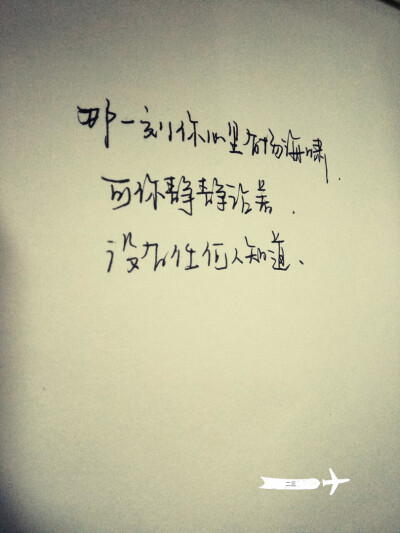 那一刻你心里有场海啸.
可你静静站着.
没有任何人知道、
二三